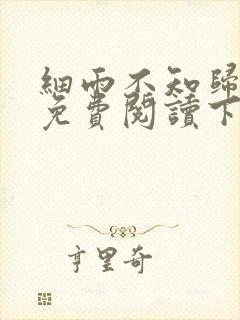 細雨不知歸
免費閱讀下
亨里奇